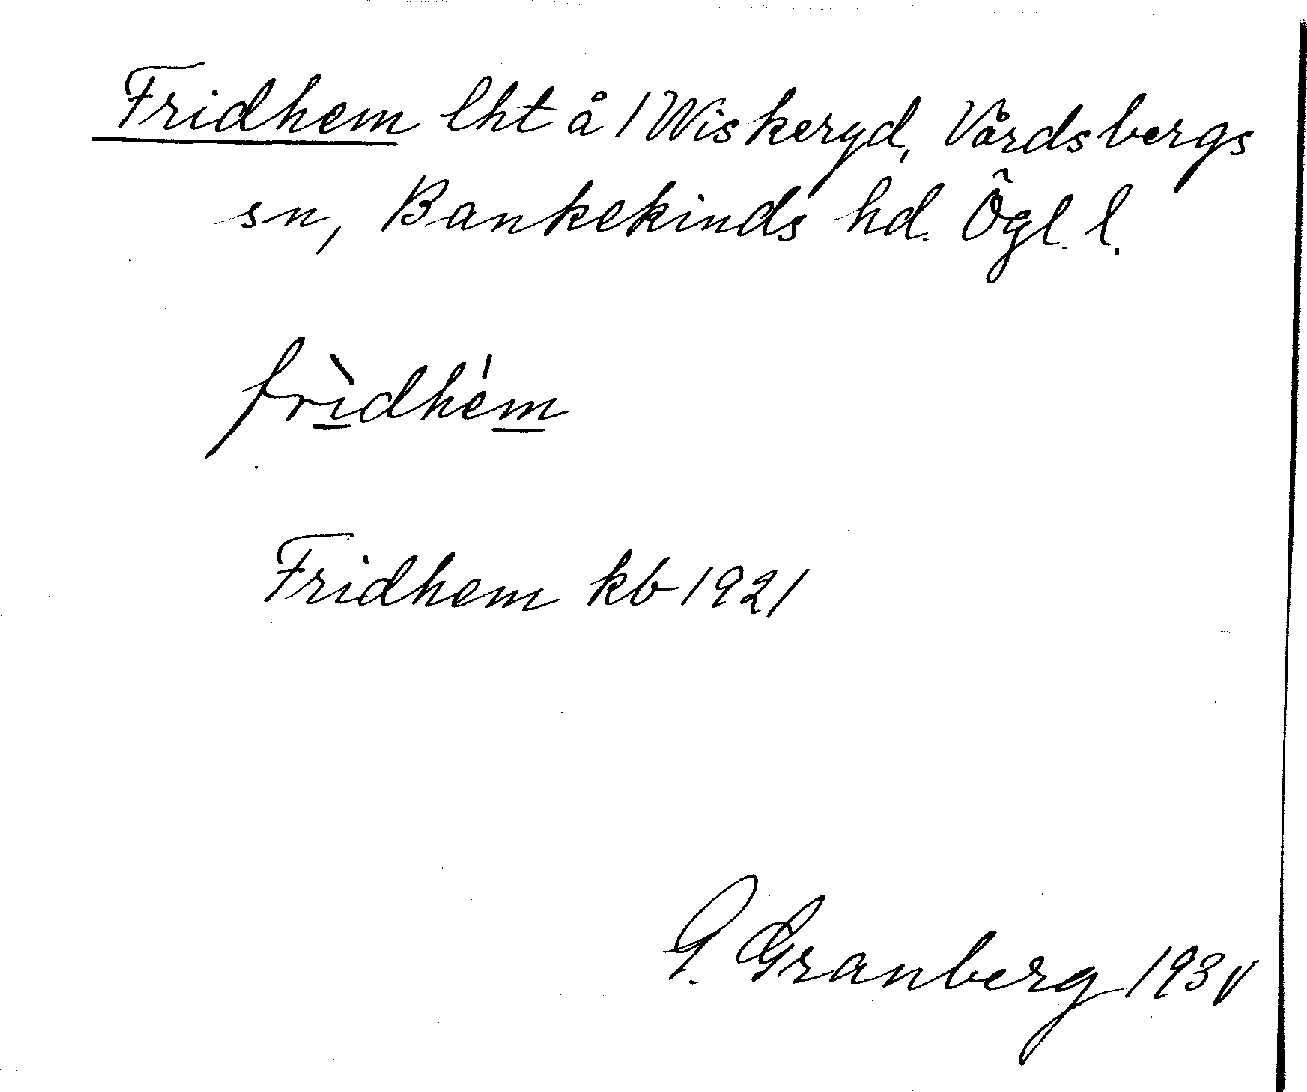 Fridhem lht å 1 Wiskeryd, Vårdsbergs
sn, Bankekinds hd. Ögl. l.
frìdhém
Fridhem kb 1921
G. Granberg